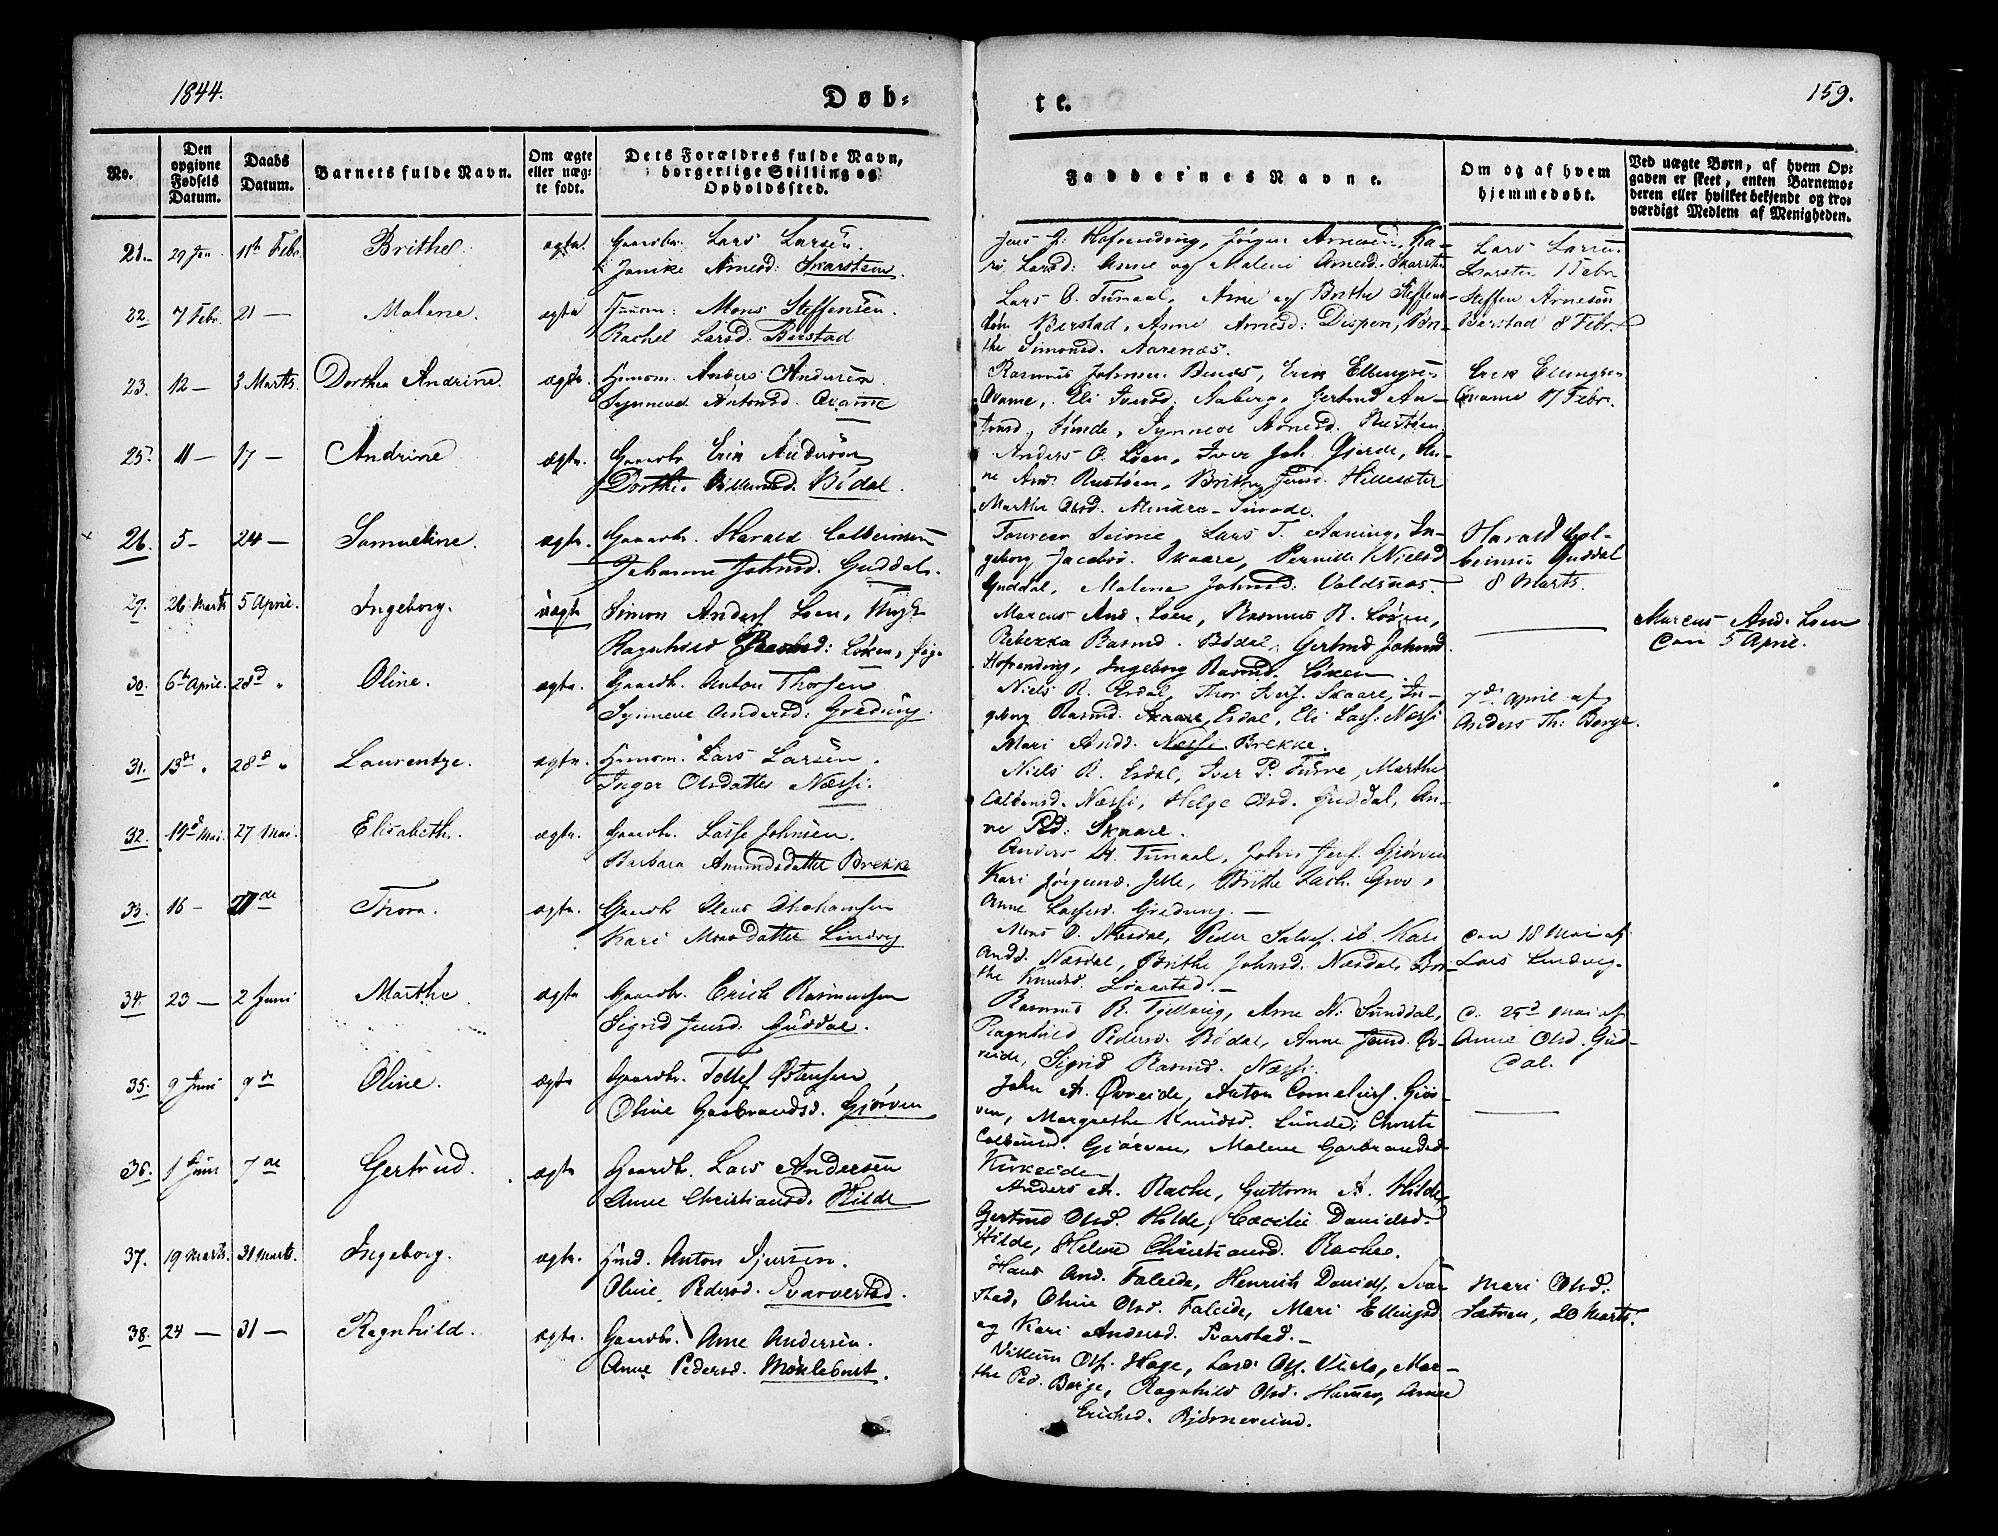 1844.
Døb-
te.
159.
No.
Den opgivne Fødsels Datum.
Daabs Datum.
Barnets fulde Navn.
Om ægte eller uægte født.
Dets Forældres fulde Navn, borgerlige Stilling og Opholdssted.
Faddernes Navne.
Om og af hvem hjemmedøbt.
Ved uægte Børn, af hvem Op-
gaven er skeet, enten Barnemo-
deren eller hvilket bekjendt og tro-
værdigt Medlem af Menigheden.
21. 29 Jan 11te Febr. Brithe ægte Gaardbr. Lars Larsen
Janike Arnesd: Skarsten.
Jens J: Hofrending, Jørgen Arnesen, Ka-
ri Larsd: Anne og Malene Arnesd. Skarsten
Lars Larsen
Skarsten 1 Febr
22. 7 Febr. 21 — Malene. ægte Mons Steffensen.
Rachel Larsd. Berstad
Lars O. Tunaal, Arne og Brithe Steffens-
Berstad, Anne Arnesd: Dispen, Bri-
the Simonsd. Aarenæs.
Steffen Arnesøn
Berstad 8 Febr.
23. 12 — 3 Marts. Dorthea Andrine ægte. Huusm. Anders Andersen.
Synneve Antonsd. Qvame
Rasmus Johnsen Benes, Erik Ellingsen
Qvame, Eli Iversd. Aaberg, Gertrud An-
tonsd. Sunde, Synneve Arnesd. Rustøen
Erik Ellingsen
Qvame 17 Febr.
25. 11 — 17 — Andrine ægte. Gaardbr Erik Andersøn
Dorthe Willumsd. Bødal.
Anders O. Loen, Iver Joh. Gjerde, An-
ne And. Rustøen, Brithe Jensd. Hillesæter
Marthe Olsd. Mindre-Sunde.
26. 5 — 24 — Samueline. ægte. Gaardbr. Harald Colbeinsen
Johanne Johnsd. Guddal.
Lars T. Aaning, In-
geborg Jacobsd. Skaare, Pernille Nielsd
Guddal, Malene Johnsd: Valdsnæs.
Harald Col-
beinsen Guddal
8 Marts.
29. 26 Marts 5 April. Ingeborg. uægte Simon Anders Loen,
Ragnhild Loken, pige
Marcus And. Loen, Rasmus R. Løken,
Rebekka Rasmd. Bødal, Gertrud Johnsd
Hofrending, Ingeborg Rasmd. Løken
Marcus And. Loen
den 5 April.
30. 6te April. 28d " Oline. ægte. Gaardb. Anton Thorsen
Synneve Andersd: Gredung.
Niels R. Erdal, Thor Ivers. Skaare, In-
geborg Rasmd. Skaare, Erdal, Eli Lass: Næssi
Mari Andd. Næssi Brekke.
7de April af
Anders Th: Borge.
31. 13de " 28d " Laurentze. ægte. Huusm. Lars Larsen.
Inger Olsdatter Næssi.
Niels R. Erdal, Iver P. Tune, Marthe
Colbensd. Næssi, Helge Olsd. Guddal, An-
ne Pd: Skaare.
32. 19d Mai. 27 Mai. Elisabeth. ægte. Gaardbr. Lasse Johnsen.
Barbara Amundsdatter Brekke
Anders A. Tunaal, John Jens. Gjørven
Kari Jørgensd. Jelle, Brithe Zach. Grov,
Anne Lassesd. Gredung. —
33. 16 — 27de Thora. ægte. Gaardbr Claus Abrahamsen
Kari Monsdatter Lindvig
Mons O. Næsdal, Peder Salv. ib. Kari
Andd. Næsdal, Brithe Johnsd. Næsdal, Bri-
the Knudsd.
den 18 Mai af
Lars Lindvig.
34. 23 — 2 Juni Marthe. ægte Gaardbr. Erich Rasmussen
Sigrid Jensd. Guddal.
Rasmus R. Tjellaug, Arne N. Sunddal,
Ragnhild Pedersd. Bødal, Anne Jensd. Øv-
reide, Sigrid Rasmd. Næssi.
d. 25d Mai af
Anne Olsd. Gud-
dal.
35. 9 Juni 9de Oline. ægte Gaardbr. Tollef Østensen
Oline Garbrandsd. Gjørven
John A. Øvreide, Anton Cornelius. Gjør-
ven, Margrethe Knudsd. Sunde, Christi
Colbeinsd. Gjørven, Malene Garbrandsd
Kirkeide
36. 1 Juni 7de Gertrud. ægte Gaardbr. Lars Andersen
Anne Christiansd. Hilde
Anders A. Rache, Guttorm A. Hilde,
Gertrud Olsd. Hilde, Cæcilie Danielsd.
Hilde, Helene Christiansd. Rache.
37. 19 Marts. 31 Marts. Ingeborg. ægte. Hmd. Anton Sjursen.
Oline Pedersd. Svarverstad.
Hans And. Faleide, Henrich Daniels. Svar-
stad, Oline Olsd. Faleide, Mari Ellingsd
og Kari Andersd. Svarstad. —
Mari Olsd:
Sætren, 20 Marts.
38. 24 — 31 — Ragnhild. ægte. Gaardbr. Arne Andersen.
Anne Pedersd. Møklebust.
Villum Ols. Hage, Lars Ols. Mar-
the Ped. Berge, Ragnhild Olsd. Hammer, Anne
Erichsd. Bjørnereim.